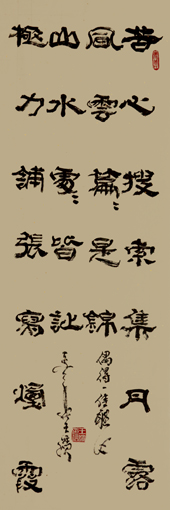 苦心搜索集月露
風雲篇〻是錦
極力鋪張寫煙霞
山水處〻皆
偶得一佳聯